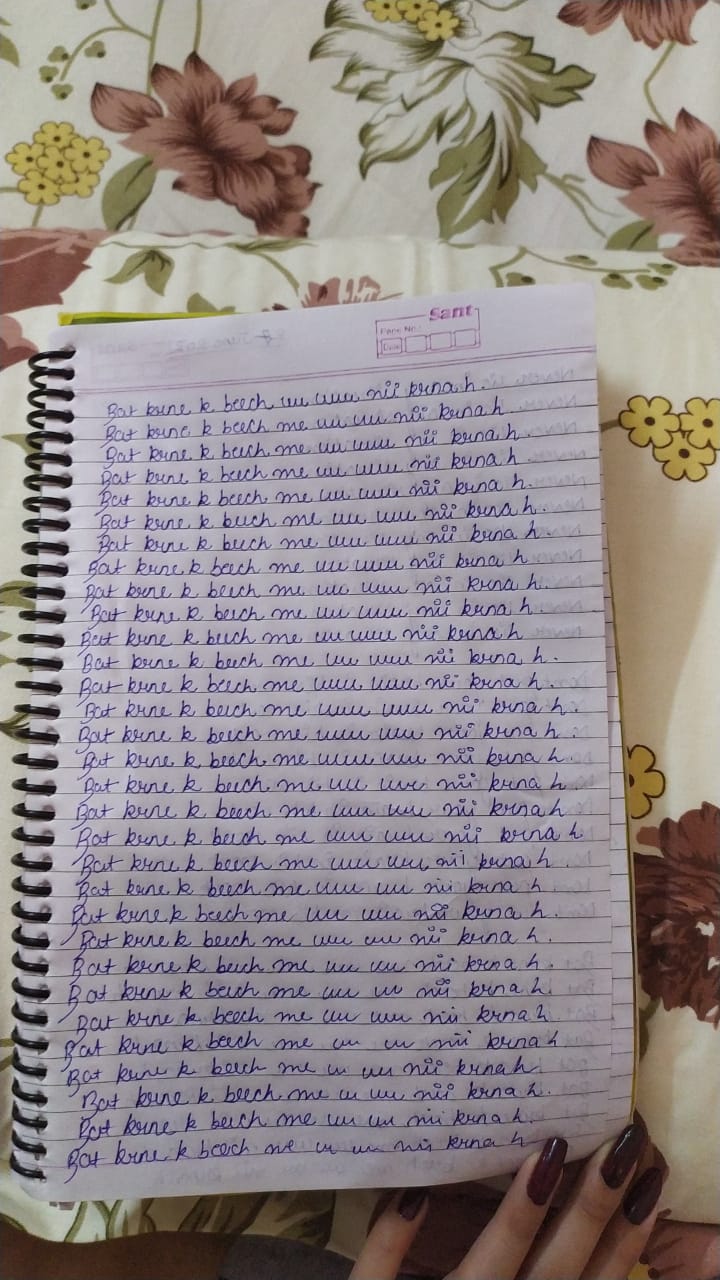 Sant
Page No.:
Date
Bat krne k beech uu uuu nii krna h
Bat krne k beech me uu uu nii krna h
Bat krne k beech me uu uuu nii krna h.
Bat krne k beech me uu uuu nii krna h
Bat krne k beech me uu uuu nii krna h.
Bat krne k beech me uu uuu nii krna h.
Bat krne k beech me uu uuu nii krna h
Bat krne k beech me uu uuu nii krna h
Bat krne k beech me uu uuu nii krna h.
Bat krne k beech me uu uuu nii krna h
Bat krne k beech me uu uuu nii krna h
Bat krne k beech me uu uuu nii krna h.
Bat krne k beech me uuu uuu nii krna h.
Bat krne k beech me uuu uuu nii krna h.
Bat krne k beech me uuu uuu nii krna h.
Bat krne k beech me uuuu uuu nii krna h.
Bat krne k beech me uu uu nii krna h
Bat krne k beech me uu uu nii krna h
Bat krne k beech me uu uuu nii krna h
Bat krne k beech me uuu uuu nii krna h
Bat krne k beech me uuu uu nii krna h
Bat krne k beech me uu uuu nii krna h
Bat krne k beech me uu uu nii krna h.
Bat krne k beech me uu uu nii krna h.
Bat krne k beech me uu u nii krna h
Bat krne k beech me uu uuu nii krna h
Bat krne k beech me uu u nii krna h
Bat krne k beech me u uu nii krna h
Bat krne k beech me u uu nii krna h.
Bat krne k beech me uu uu nii krna h.
Bat krne k beech me u u nii krna h